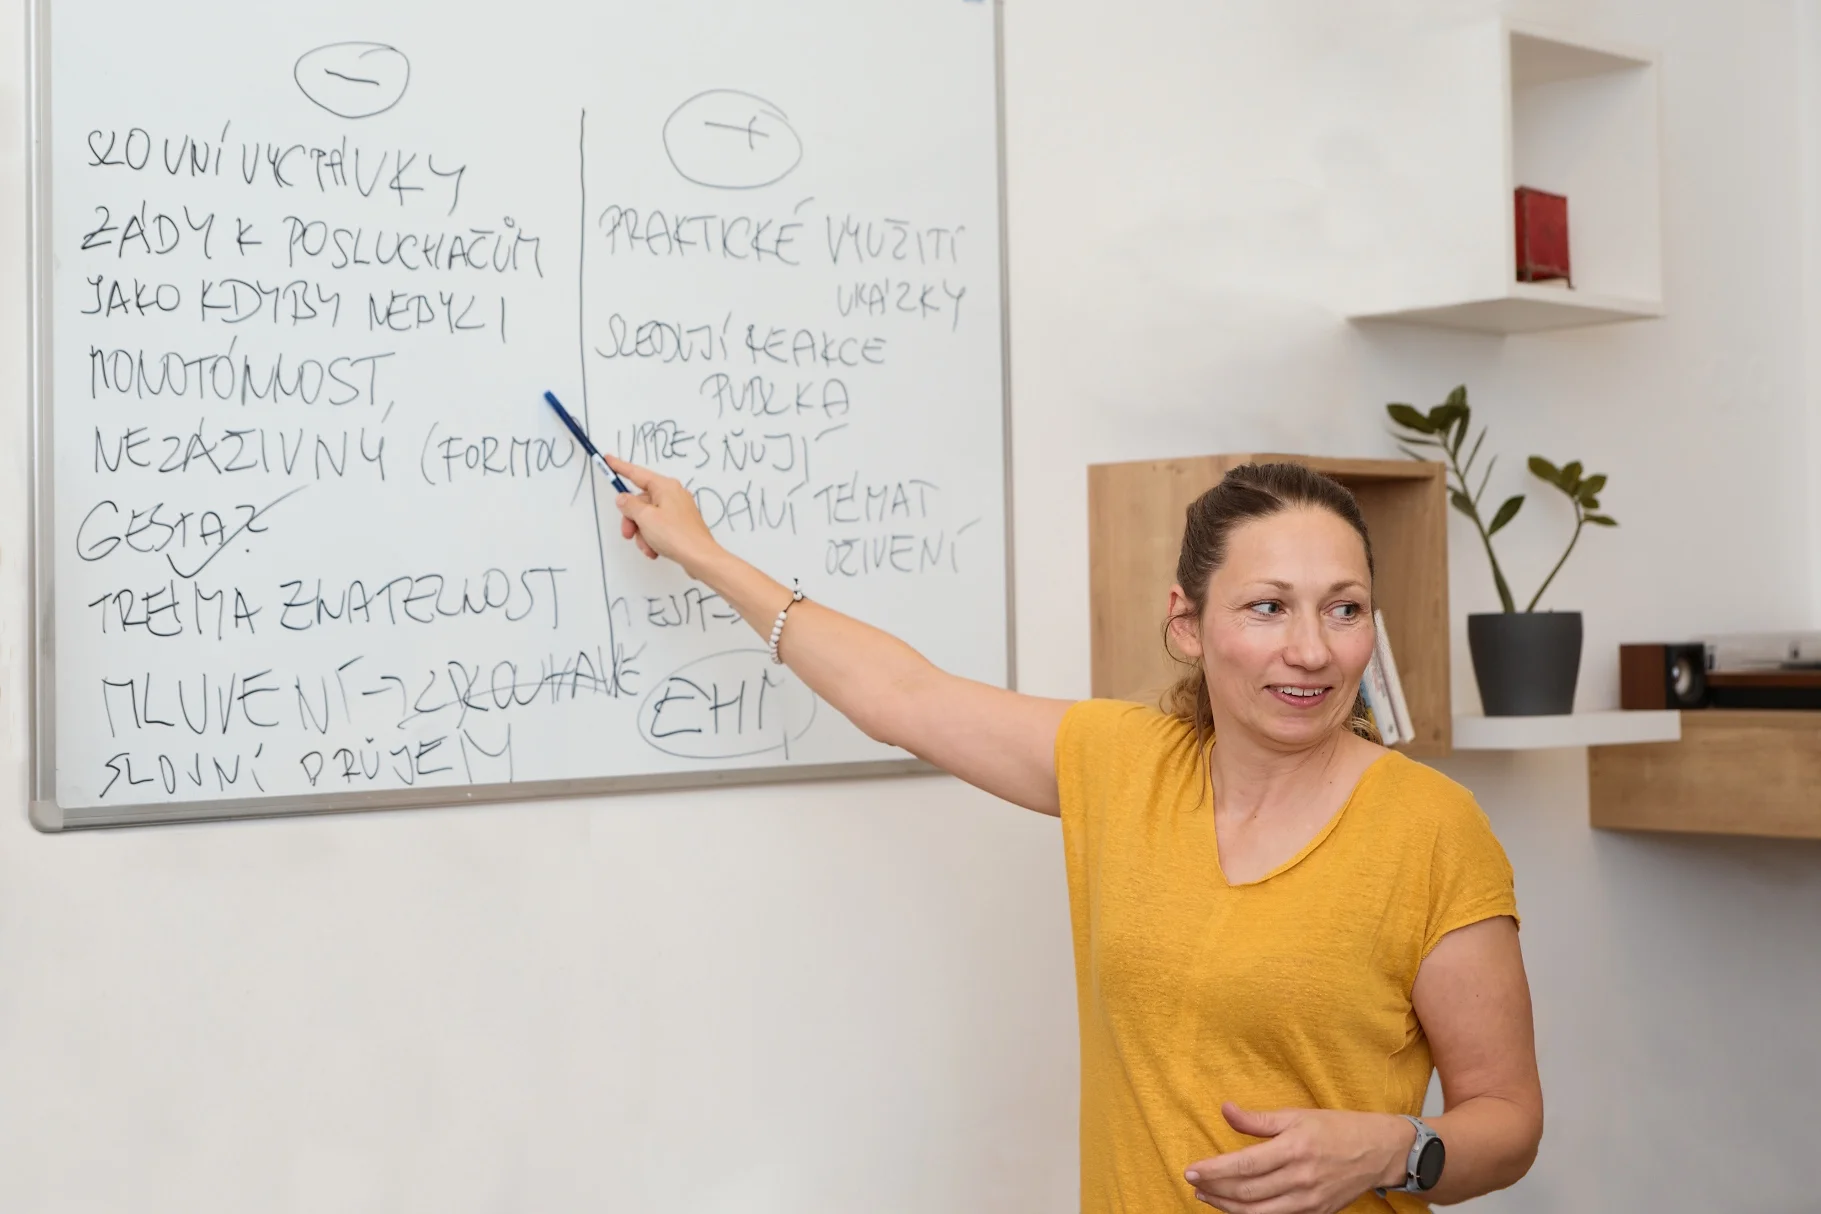 −
SLOVNÍ VYCPÁVKY
ZÁDY K POSLUCHAČŮM
JAKO KDYBY NEBYLI
MONOTÓNNOST,
NEZÁŽIVNÝ (FORMOU)
GESTA?
TRÉMA ZNATELNOST
MLUVENÍ → ZKOUMAVÉ
SLOVNÍ PRŮJEM
+
PRAKTICKÉ VYUŽITÍ
UKÁZKY
SLEDUJÍ REAKCE
PUBLIKA
UPŘESŇUJÍ
TÉMAT
OŽIVENÍ
EHM